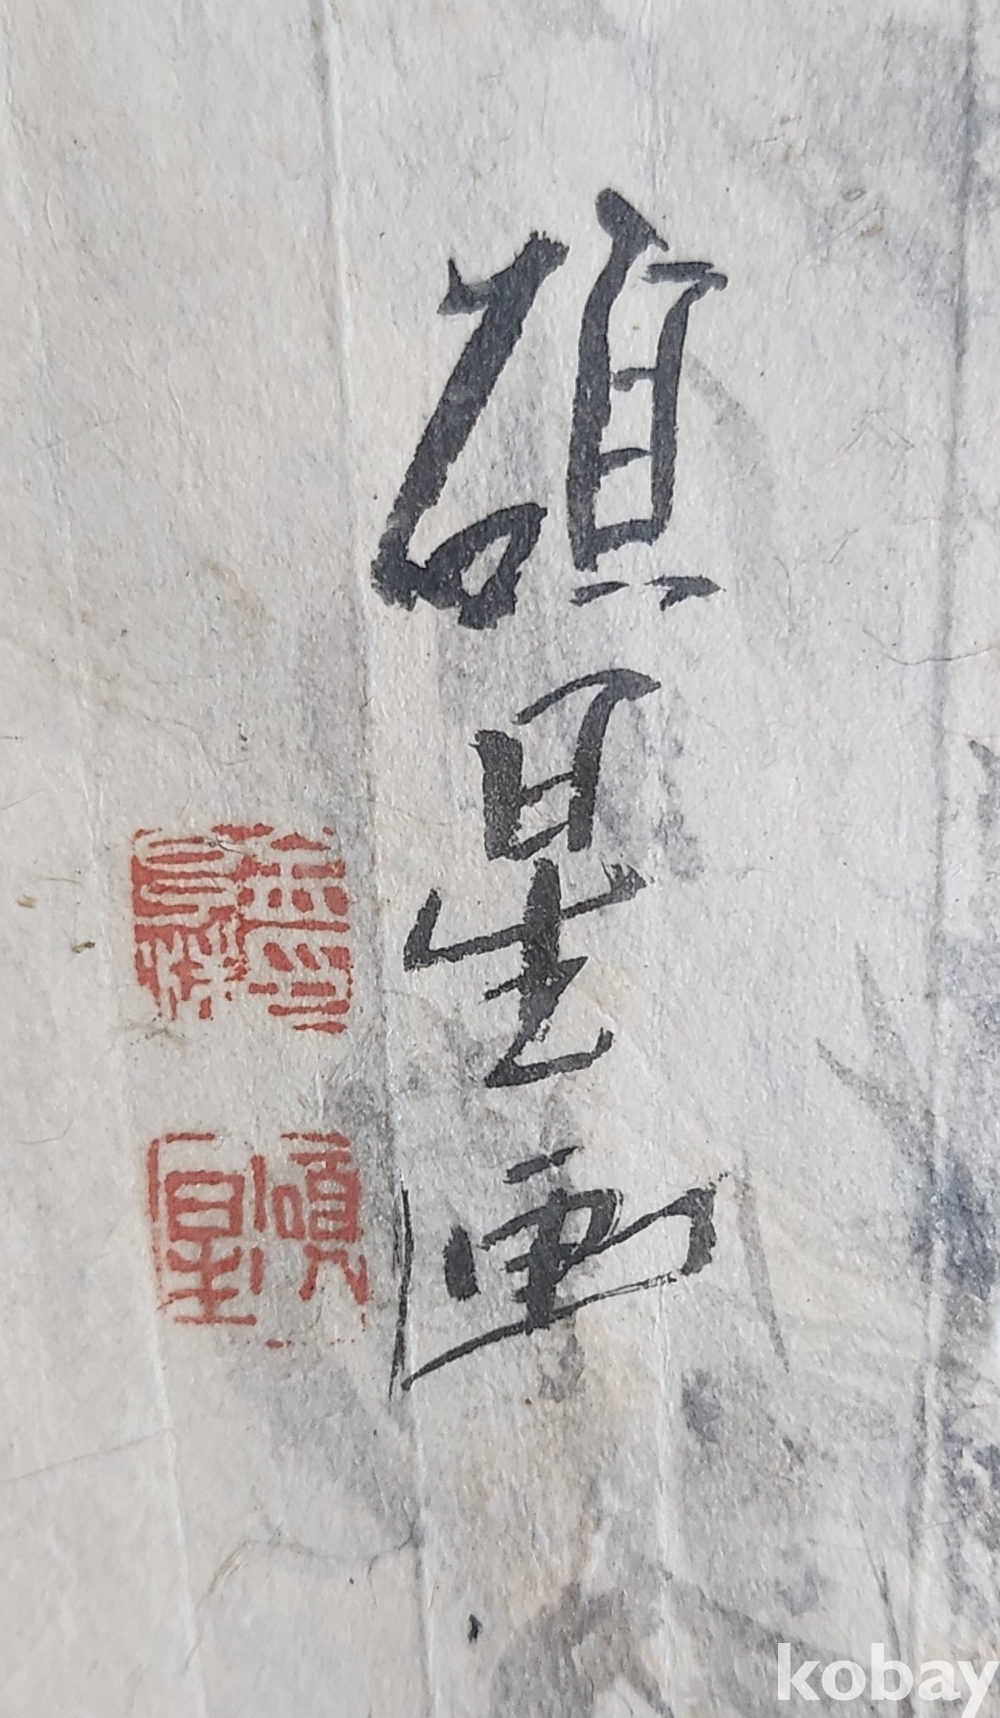 碩星画
碩星
kobay